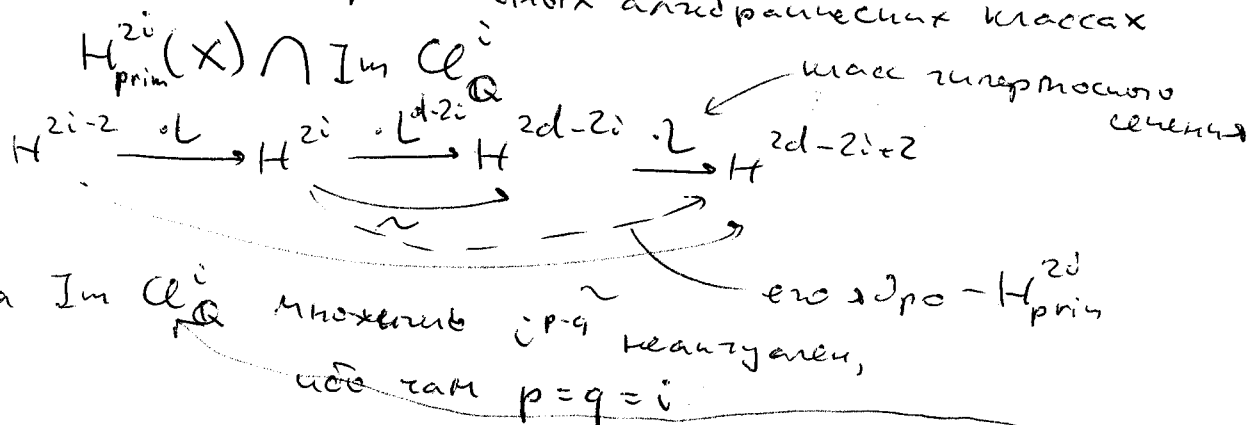 алгебраических классах
H^{2i}_{prim}(X) ⋂ Im Cl^i_Q
класс гиперплоского
сечения
H^{2i-2} →^{·L} H^{2i} →^{·L^{d-2i}} H^{2d-2i} →^{·L} H^{2d-2i+2}
~
~
его ядро – H^{2i}_{prim}
На Im Cl^i_Q множитель i^{p-q} неактуален,
ибо там p = q = i